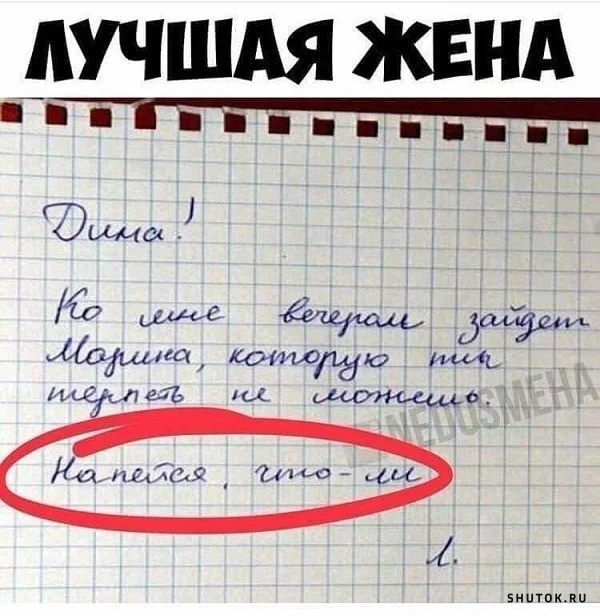 ЛУЧШАЯ ЖЕНА
Дима!
Ко мне вечером зайдет
Марина, которую ты
терпеть не можешь.
Напейся, что-ли
Л.
NEDOSMEHA
SHUTOK.RU